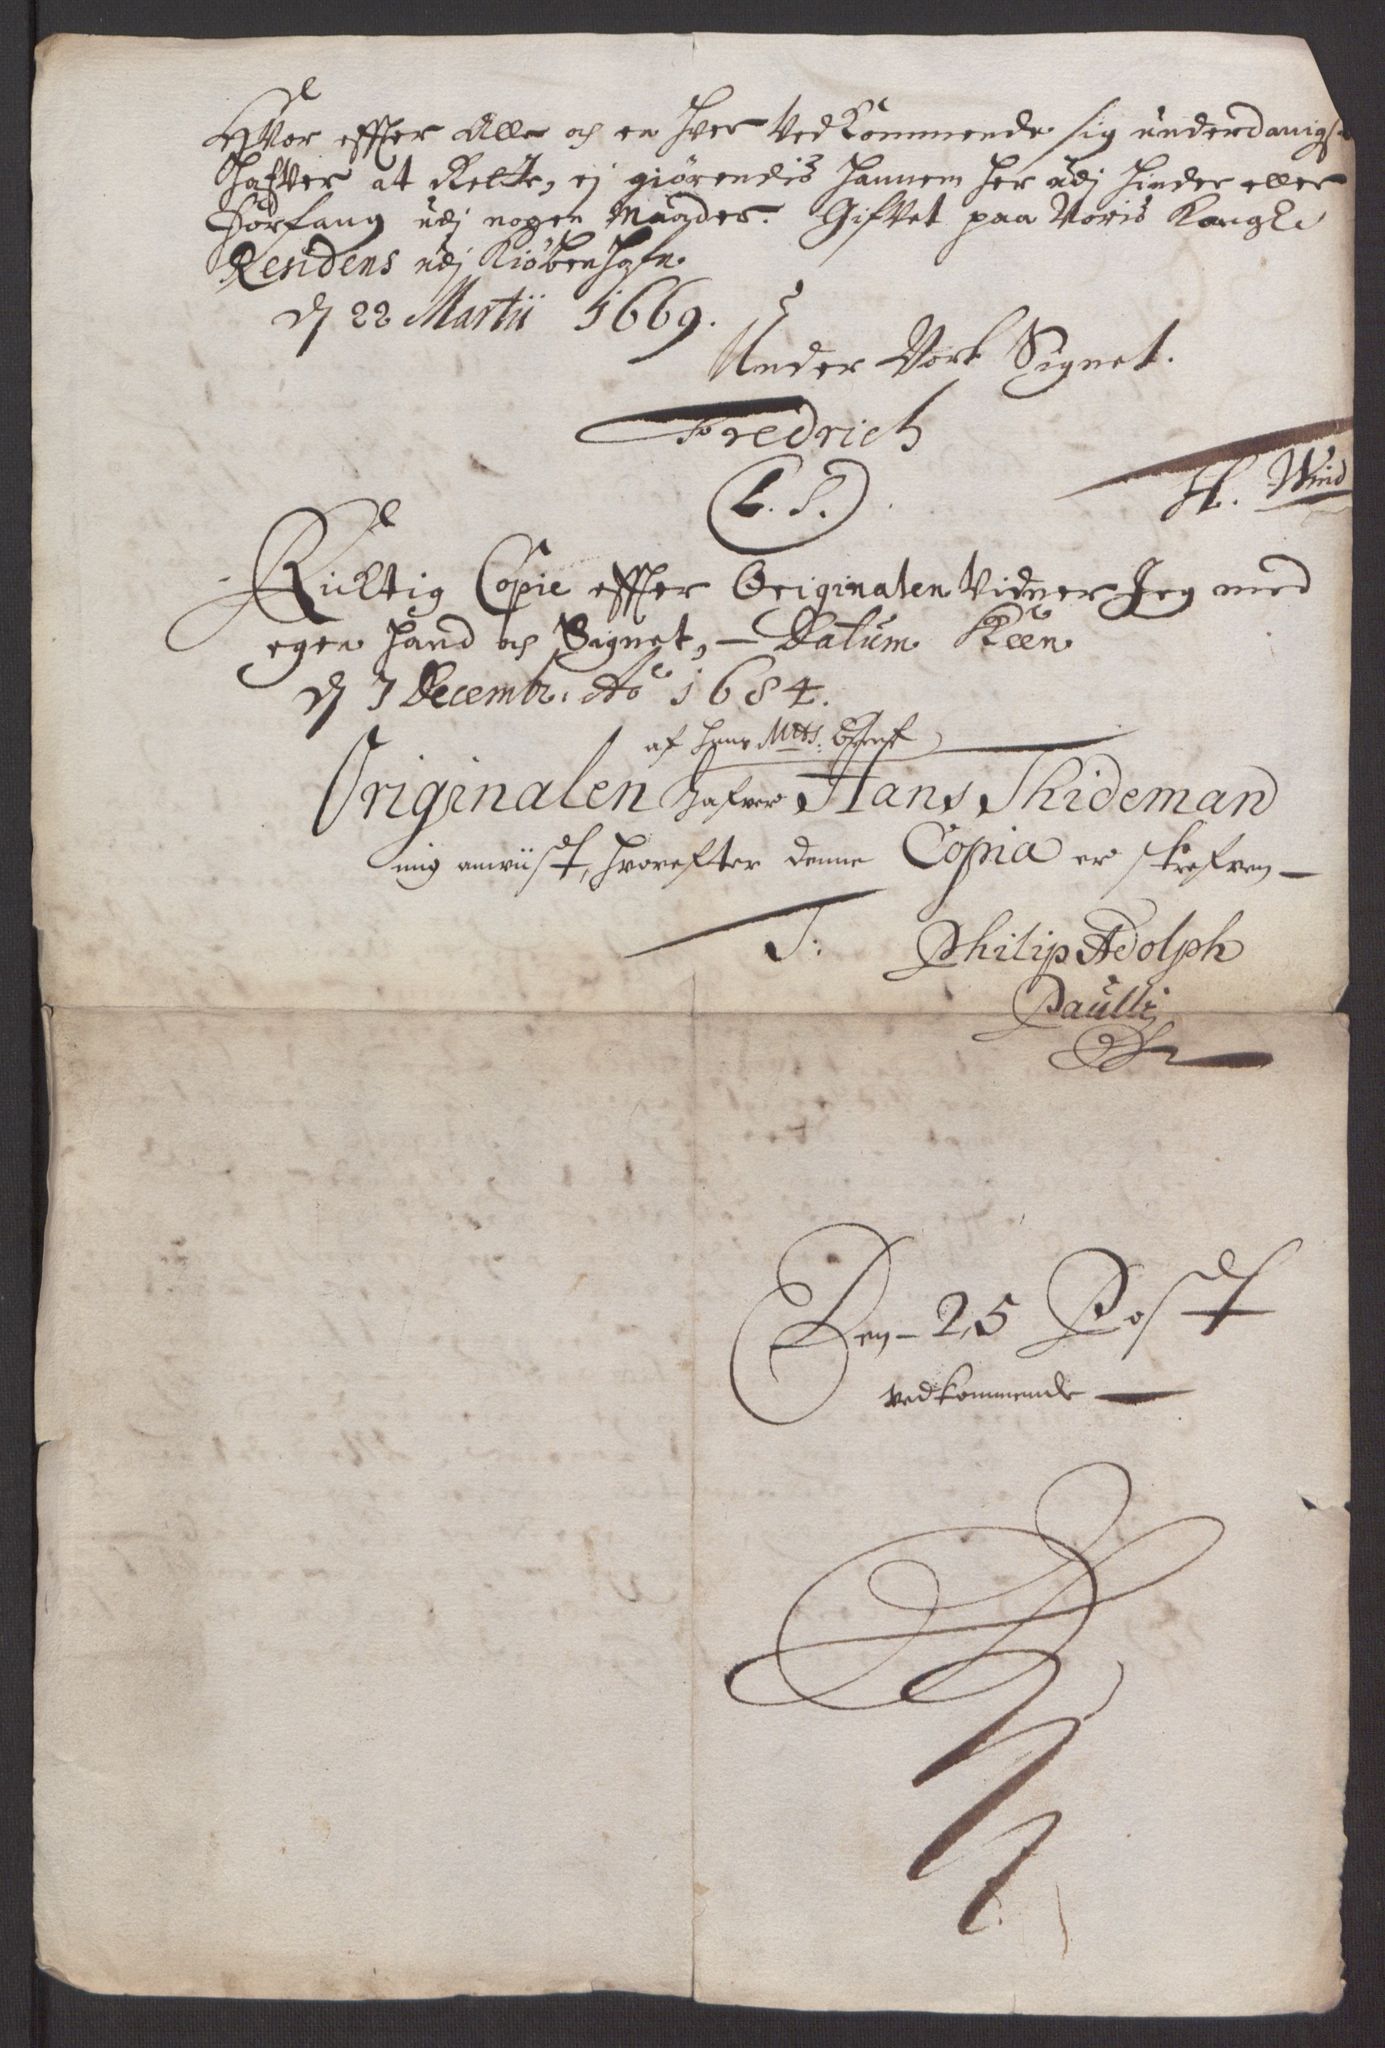 Hvor effter Alle och en hver Vedkommende sig underdanigst
hafver at Rette, ej giørendis hannem her udj hinder eller
forfang udj nogen Maader. Gifvet paa Voris Kongl:
Residens udj Kiøbenhafn
d 22 Martii 1669.
Under Vort Signet.
Fredrich
L. S.
H. Wind
Richtig Copie effter Originalen Vidner Jeg med
egen hand och Signet, – Datum Skeen
d 7 Decembr. Ao 1684.
af Hans Mtts.
Originalen hafver Hans Thideman
mig anviist, hvorefter denne Copia er skrefven –
T: Philip Adolph
Paulli
Den – 25 Post
vedkommende –